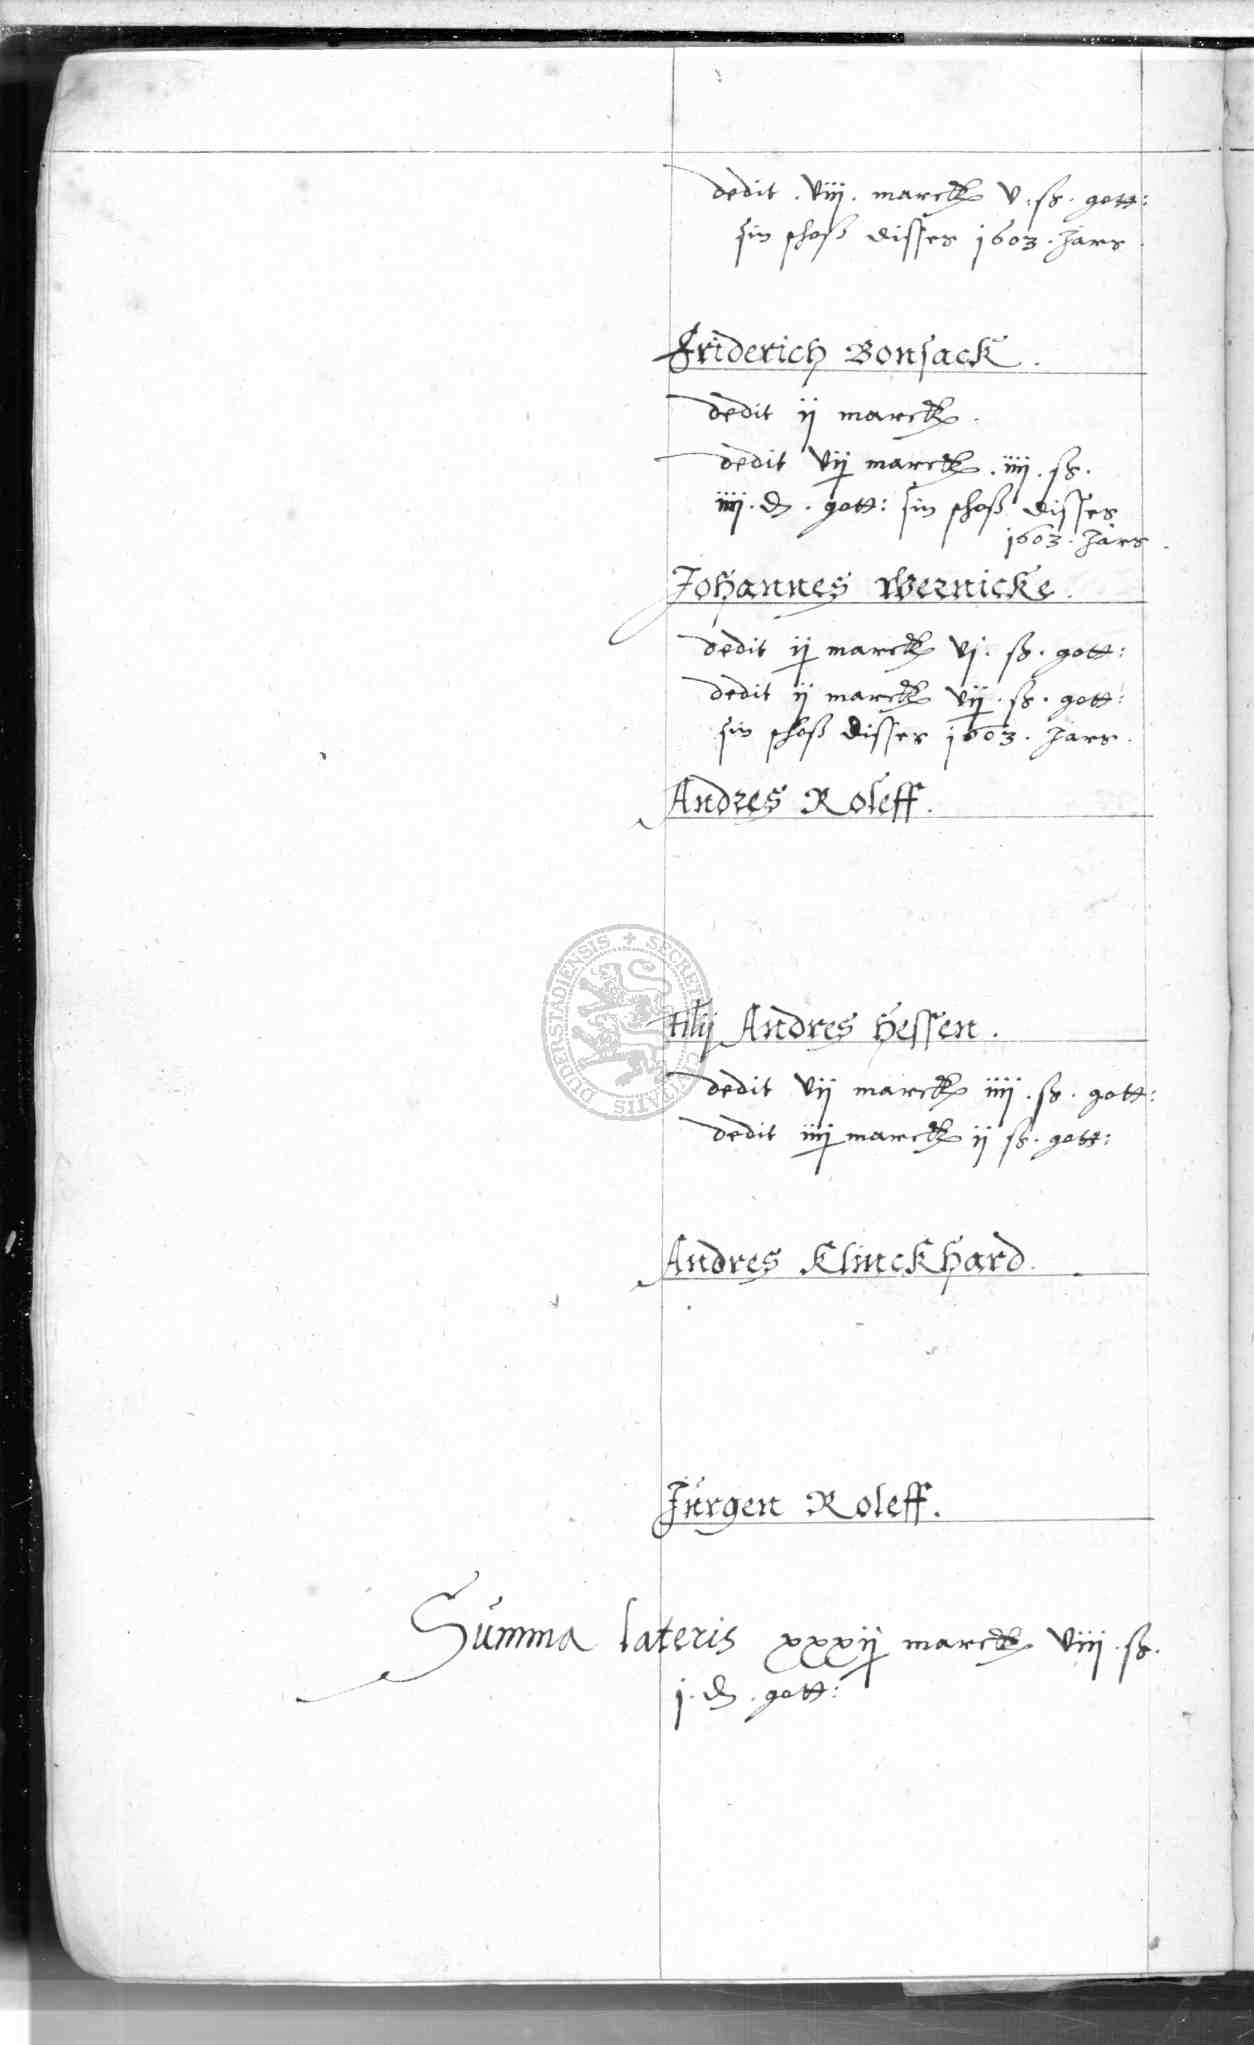 dedit . viij . marck v . ß . gott:
sin schoß disses 1603 . Jars
Friderich Bonsack .
dedit ij marck .
dedit vij marck . iiij . ß .
iiij . d . gott: sin schoß disses
1603 . Jars .
Johannes Wernicke .
dedit ij marck vj . ß . gott:
dedit ij marck vij . ß . gott:
sin schoß disses 1603 . Jars .
Andres Roleff .
filij Andres Hessen .
dedit vij marck iiij . ß . gott:
dedit iiij marck ij ß . gott:
Andres Klinckhard .
Jürgen Roleff .
Summa lateris xxxij marck viij . ß .
j . d . gott:
SECRETU CIVITATIS DUDERSTADIENSIS